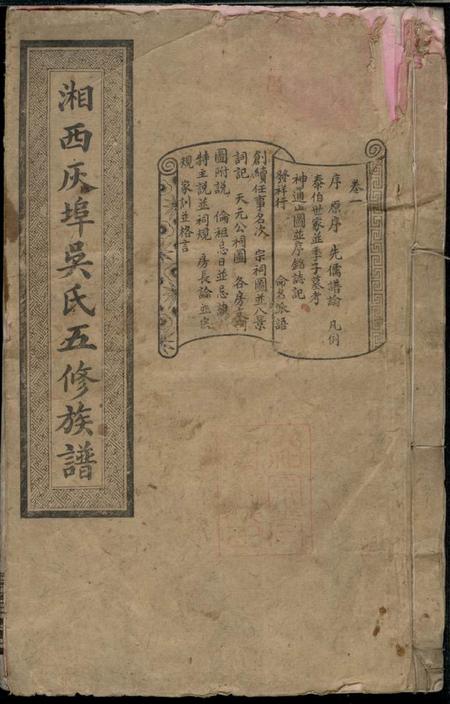 卷一
序 原序 先儒譜論 凡例
泰伯世家並季子墓考
神道山圖並序銘誌記
發祥行 命名派語
創續任事名次 宗祠圖並八景
詞記 天元公祠圖 各房
圖附說 倫祖忌日並忌
特主說並祠規 房長論並
規 家訓並格言
湘西灰埠吳氏五修族譜